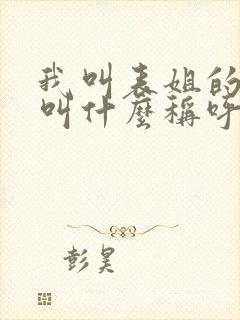 我叫表姐的
叫什麽稱呼
彭昊